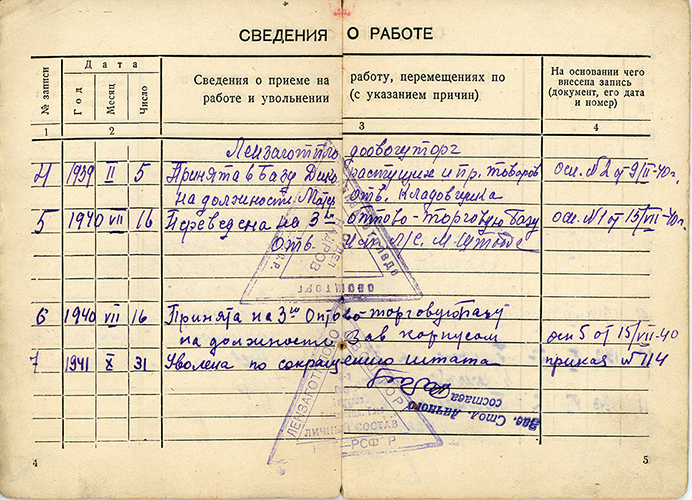 СВЕДЕНИЯ О РАБОТЕ
№ записи
Дата
Год
Месяц
Число
Сведения о приеме на работу, перемещениях по
работе и увольнении (с указанием причин)
На основании чего
внесена запись
(документ, его дата
и номер)
1 2 3 4
Лензаготплодоовощторг
4 1939 II 5 Принята в базу растущих и пр. товаров осн. №2 от 9/II-40г.
на должность отв. кладовщика
5 1940 VII 16 Переведена на 3ю оптово-торговую базу осн. №1 от 15/VII-40г.
Отв.
6 1940 VII 16 Принята на 3ю Оптово торговую базу
на должность Зав корпусом осн 5 от 15/VII-40
7 1941 X 31 Уволена по сокращению штата приказ №114
Зав. Стол. личного
состава
ЛИЧНЫЙ СОСТАВ
РСФСР
4
5